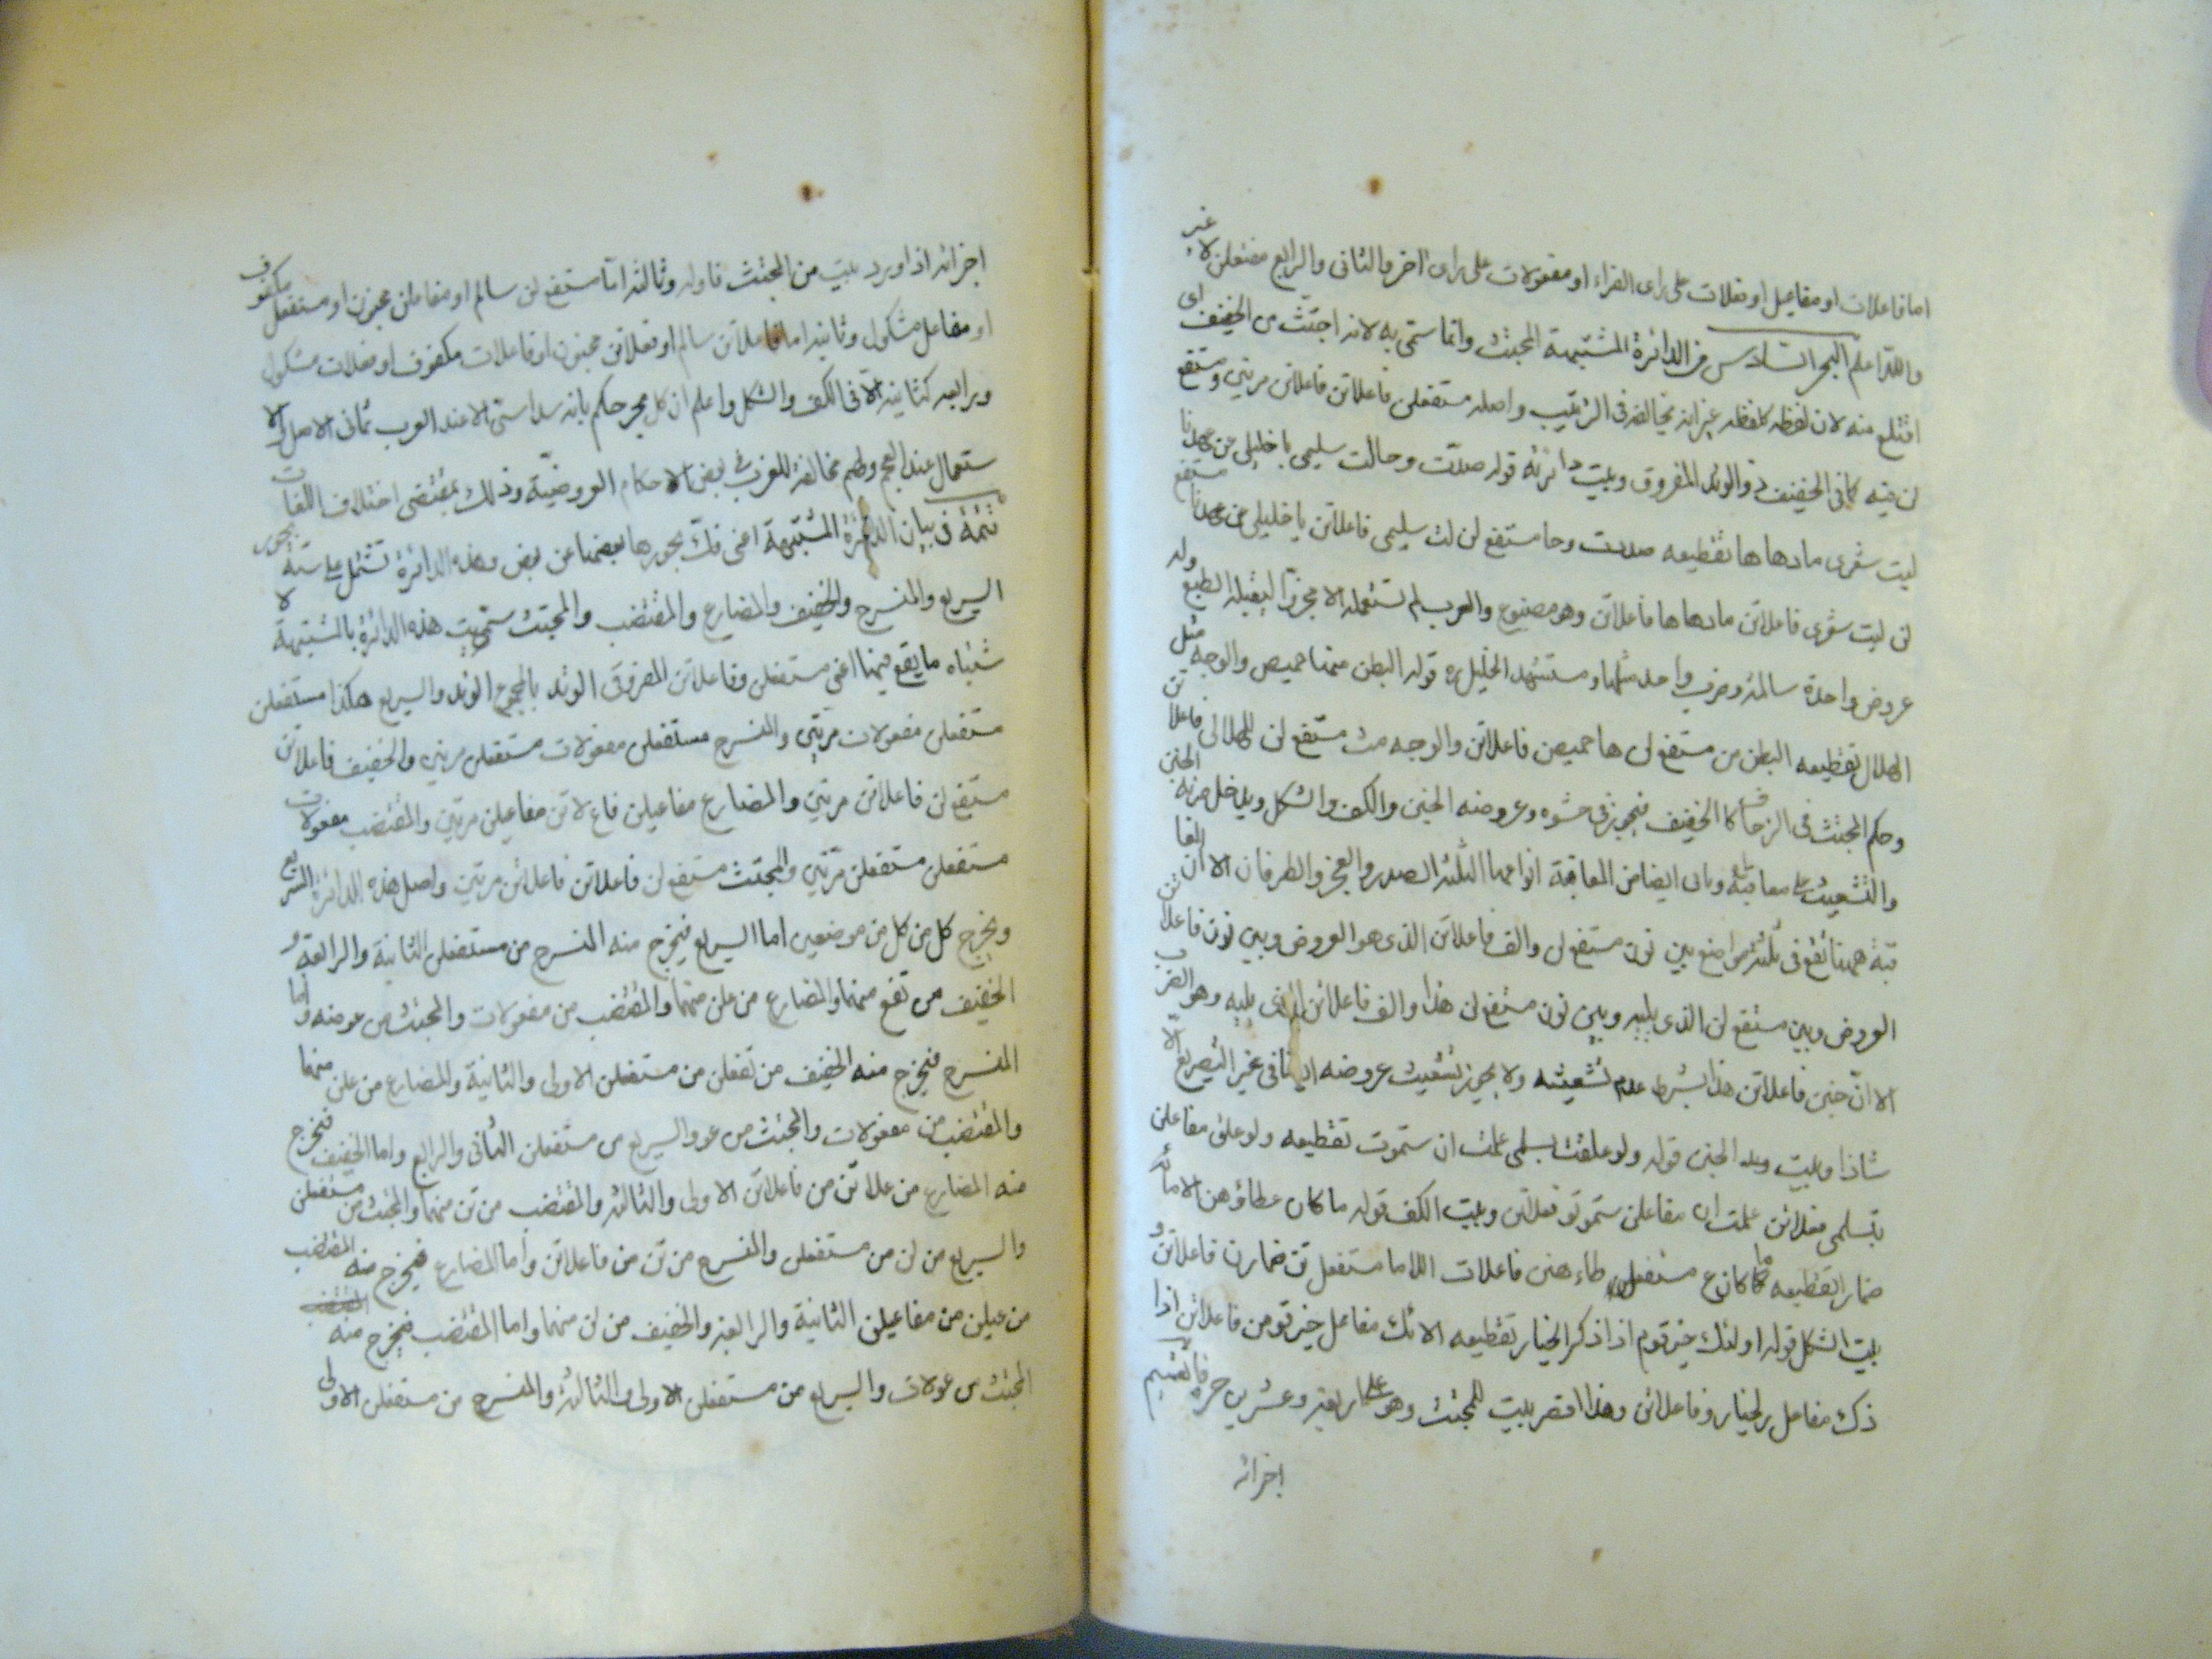 اما فاعلات او مفاعيل او مفعلات على راى الفراء او مفعولات على راى اخر والثانى والرابع مفتعلن لا غير
والله اعلم البحر السادس من الدائرة المشتبهة المجتث وانما سمى به لانه اجتث من الخفيف اى
اقتلع منه لان لفظه كلفظه غير انه يخالفه فى الترتيب واصله مستفعلن فاعلاتن فاعلاتن مرتين ومستفع
لن فيه كما فى الخفيف ذو الوتد المفروق وبيت دائرته قوله صدّت وحالت سليمى يا خليلى عن عهدنا
ليت شعرى ما دهاها تقطيعه صددت وحا مستفع لن لت سليمى فاعلاتن يا خليلى عن عهدنا مستفع
لن ليت شعرى فاعلاتن ما دهاها فاعلاتن وهو مصنوع والعرب لم تستعمله الا مجزوّا ليقبله الطبع وله
عروض واحدة سالمة وضرب واحد مثلها ومستشهد الخليل قوله البطن منها خميص والوجه مثل
الهلال تقطيعه البطن من مستفع لن ها خميصن فاعلاتن والوجه مث مستفع لن لل هلالى فاعلاتن
وحكم المجتث فى الزحاف كالخفيف فيجوز فى حشوه وعروضه الخبن والكف والشكل ويدخل ضربه الخبن
والتشعيث على معاقبة وياتى ايضا من المعاقبة انواعها الثلثة الصدر والعجز والطرفان الا ان المعا
قبة ههنا تقع فى ثلثة مواضع بين نون مستفع لن والف فاعلاتن الذى هو العروض وبين نون فاعلاتن
العروض وبين مستفع لن الذى يليه وبين نون مستفع لن هذا والف فاعلاتن الذى يليه وهو الضرب
الا انّ خبن فاعلاتن هذا بشرط عدم تشعيثه ولا يجوز تشعيث عروضه ايضا فى غير التصريع الا
شاذا وبيت الخبن قوله ولو علقت بسلمى علمت ان ستموت تقطيعه ولو علق مفاعلن
تبسلمى فعلاتن علمت ان مفاعلن ستموتو فعلاتن وبيت الكف قوله ما كان عطاؤهن الا عدة
ضمارا تقطيعه ما كان ع مستفعل طاءهنن فاعلات اللا عدا مستفعل تن ضمارن فاعلاتن و
بيت الشكل قوله اولئك خير قوم اذا ذكر الخيار تقطيعه الائك مفاعل خير قومن فاعلاتن اذا
ذك مفاعل ر لخيارو فاعلاتن وهذا اقصر بيت للمجتث وهو على اربعة وعشرين حرفا تقسيم
اجزائه
اجزائه اذا ورد بيت من المجتث فاوله وثالثه امّا مستفع لن سالم او مفاعلن مخبون او مستفعل مكفوف
او مفاعل مشكول وثانيه اما فاعلاتن سالم او فعلاتن مخبون او فاعلات مكفوف او فعلات مشكول
ورابعه كثانيه الا فى الكف والشكل واعلم ان كل بحر حكم بانه سداسى الا عند العرب ثمانى الاصل والا
ستعمال عند العجم ولهم مخالفة للعرب فى بعض الاحكام العروضيّة وذلك بمقتضى اختلاف اللغات
تتمة فى بيان الدائرة المشتبهة اعنى فكّ بحورها بعضها عن بعض وهذه الدائرة تشتمل على ستة بحور
السريع والمنسرح والخفيف والمضارع والمقتضب والمجتث سمّيت هذه الدائرة بالمشتبهة لا
شتباه ما يقع فيها اعنى مستفعلن وفاعلاتن المفروق الوتد بالمجموع الوتد والسريع هكذا مستفعلن
مستفعلن مفعولات مرتين والمنسرح مستفعلن مفعولات مستفعلن مرتين والخفيف فاعلاتن
مستفع لن فاعلاتن مرتين والمضارع مفاعيلن فاع لاتن مفاعيلن مرتين والمقتضب مفعولات
مستفعلن مستفعلن مرّتين والمجتث مستفع لن فاعلاتن فاعلاتن مرتين واصل هذه الدائرة السريع
ويخرج كل من كل من موضعين اما السريع فيخرج منه المنسرح من مستفعلن الثانية والرابعة و
الخفيف من تفع منهما والمضارع من علن منهما والمقتضب من مفعولات والمجتث من عو منه واما
المنسرح فيخرج منه الخفيف من تفعلن من مستفعلن الاولى والثانية والمضارع من علن منهما
والمقتضب من مفعولات والمجتث من عو والسريع من مستفعلن الثانى والرابع واما الخفيف فيخرج
منه المضارع من علاتن من فاعلاتن الاولى والثالثة والمقتضب من تن منهما والمجتث من مستفعلن
والسريع من لن من مستفعلن والمنسرح من تن من فاعلاتن واما المضارع فيخرج منه المقتضب
من عيلن من مفاعيلن الثانية والرابعة والخفيف من لن منهما واما المقتضب فيخرج منه
المجتث من عولات والسريع من مستفعلن الاولى والثالثة والمنسرح من مستفعلن الاولى